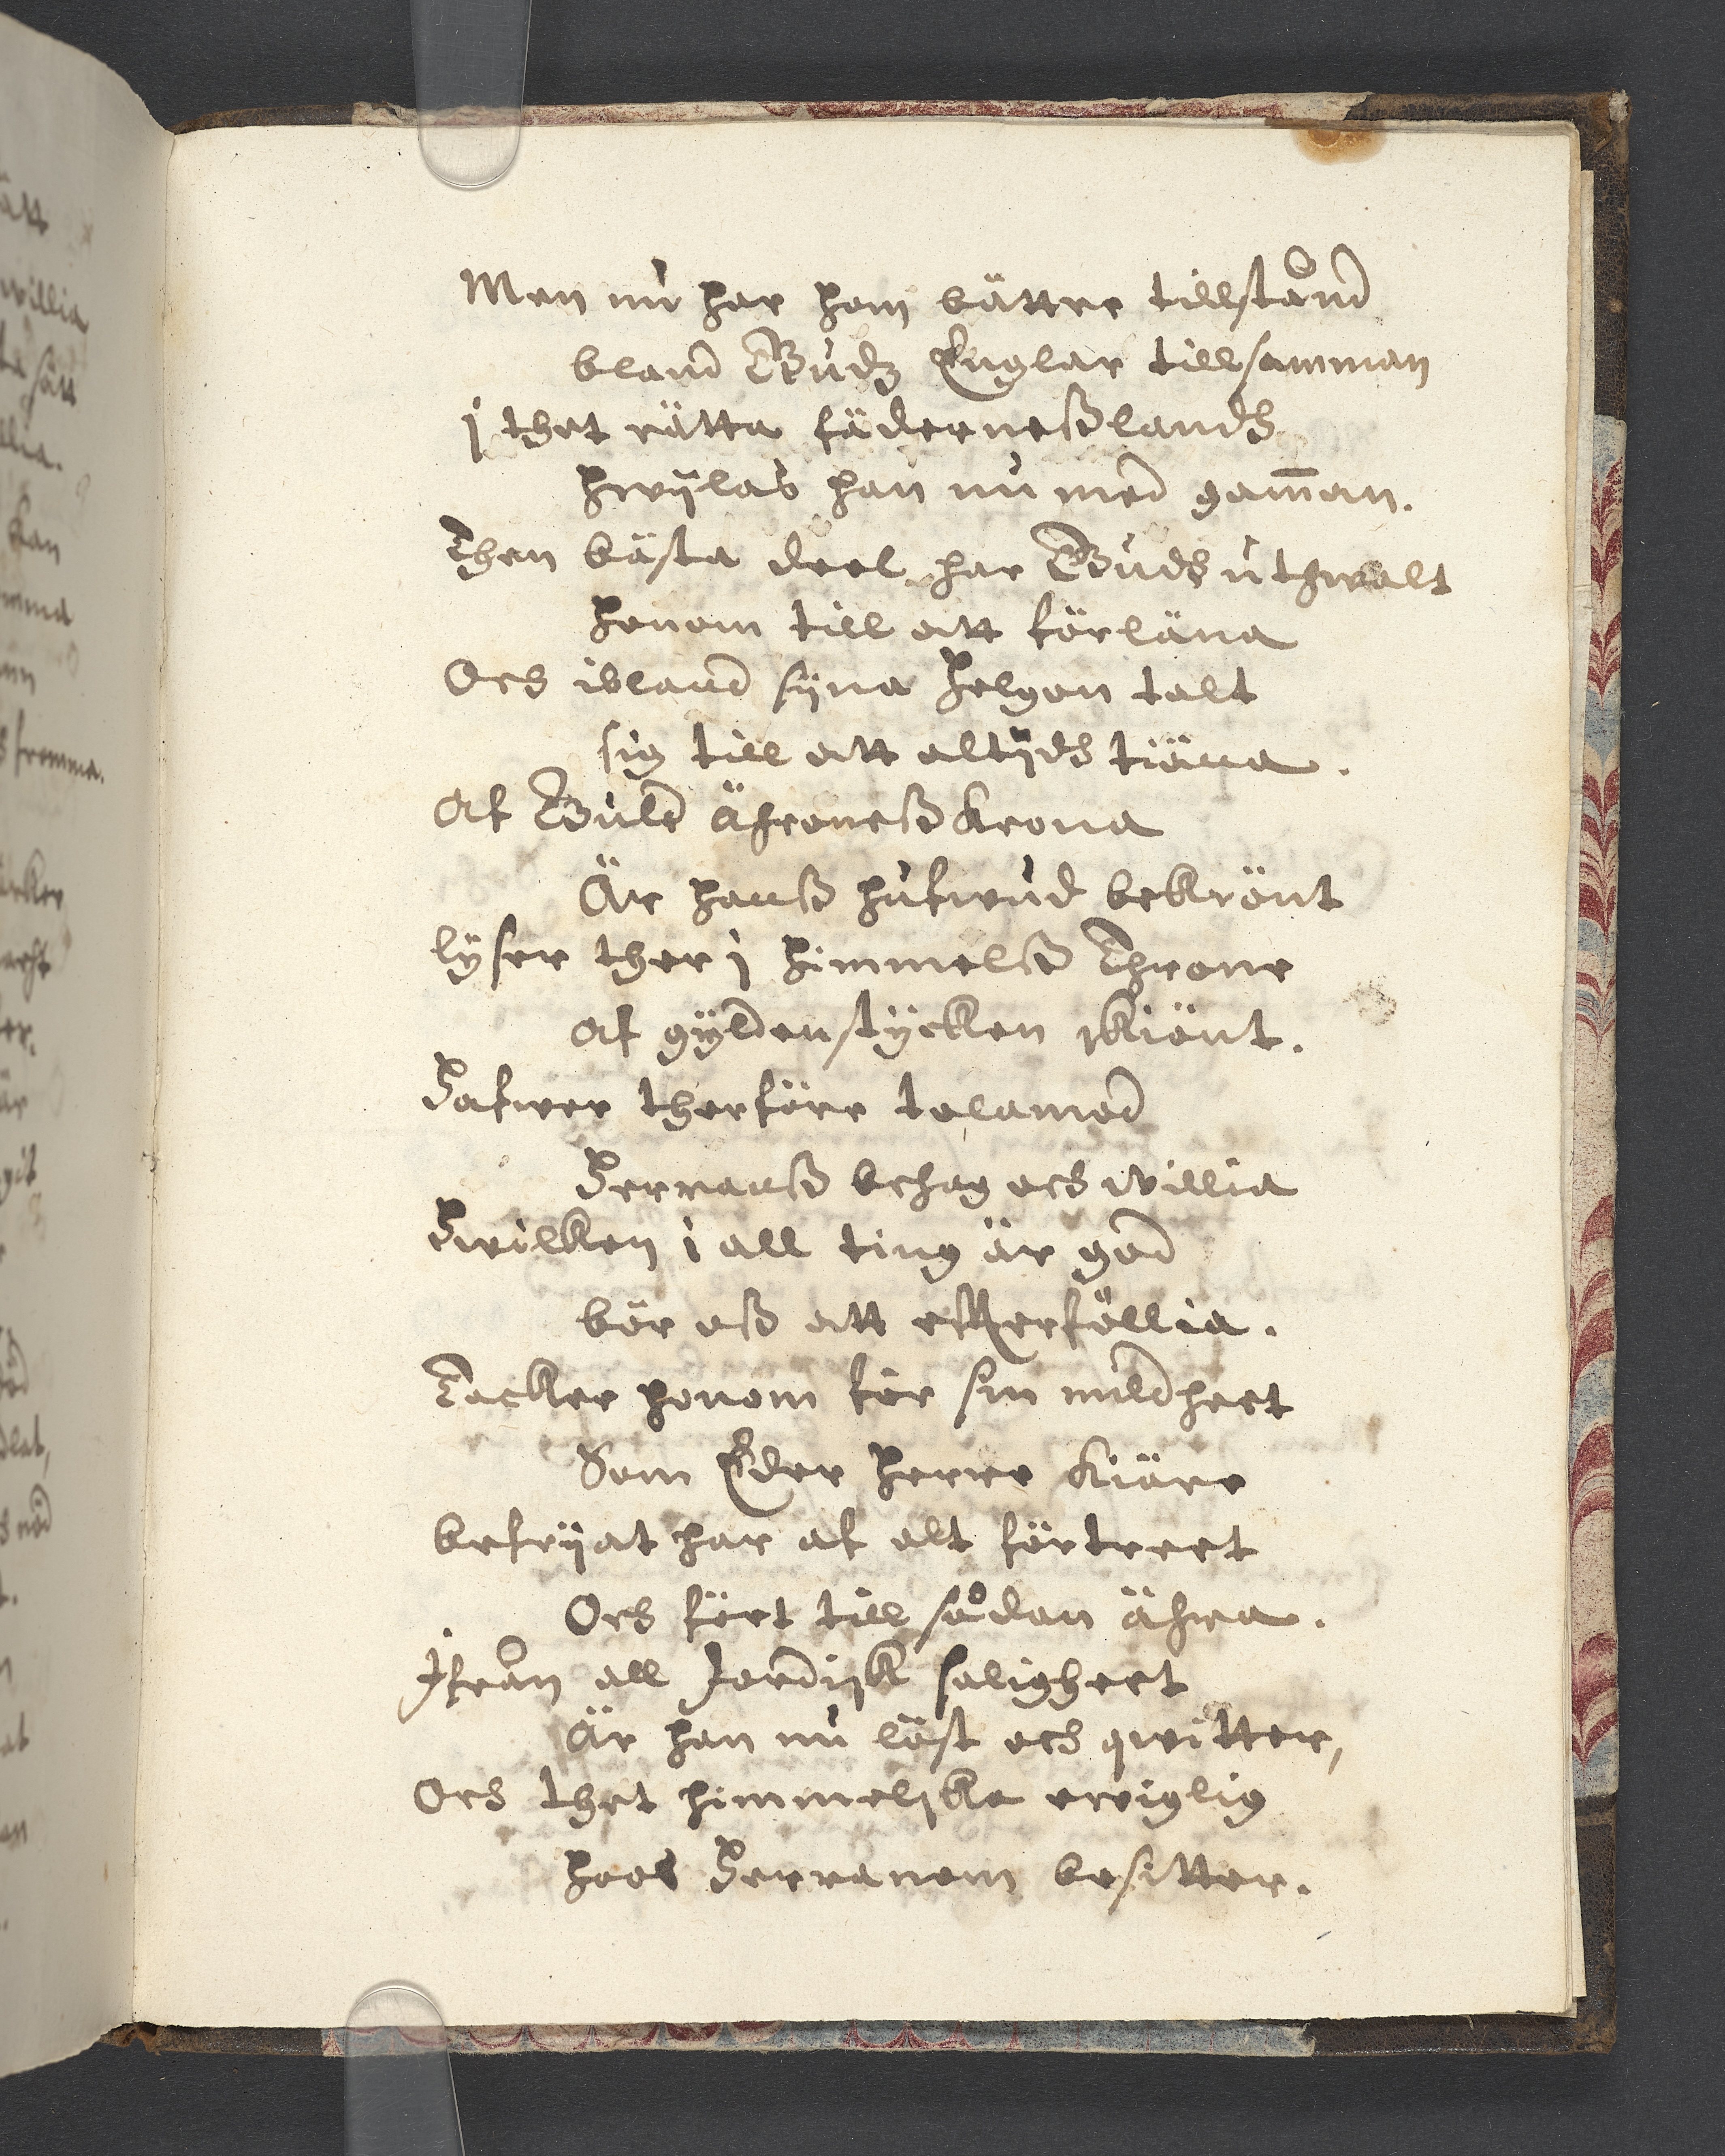 Men nu har han bättre tillstånd
bland Gudz Englar tillsamman
j thet rätta fäderneßlandh
hwijlas han nu med gam̄an.
Then bästa deel har Gudh uthwalt
honom till att förläna
Och ibland sijna helgon talt
sig till att altijdh tiäna.
Af Guld Ährones Krona
Är hanß hufwud bekrönt
lyser ther j himmelß Throne
af gyldenstycken skiönt.
Hafwer therföre tolamod
Herranß behag och willia
Hwilken i all ting är god
bör oß att efterföllia.
Tacker honom för sin mildheet
Som Eder herre kiäre
befrijat har af alt förtreet
Och fört till sådan ähra.
Ifrån all Jordisk saligheet
Är han nu löst och qwitter,
Och thet himmelska ewiglig
hoos Herranom besitter.
ätt
willia
sätt
kan
fromma.